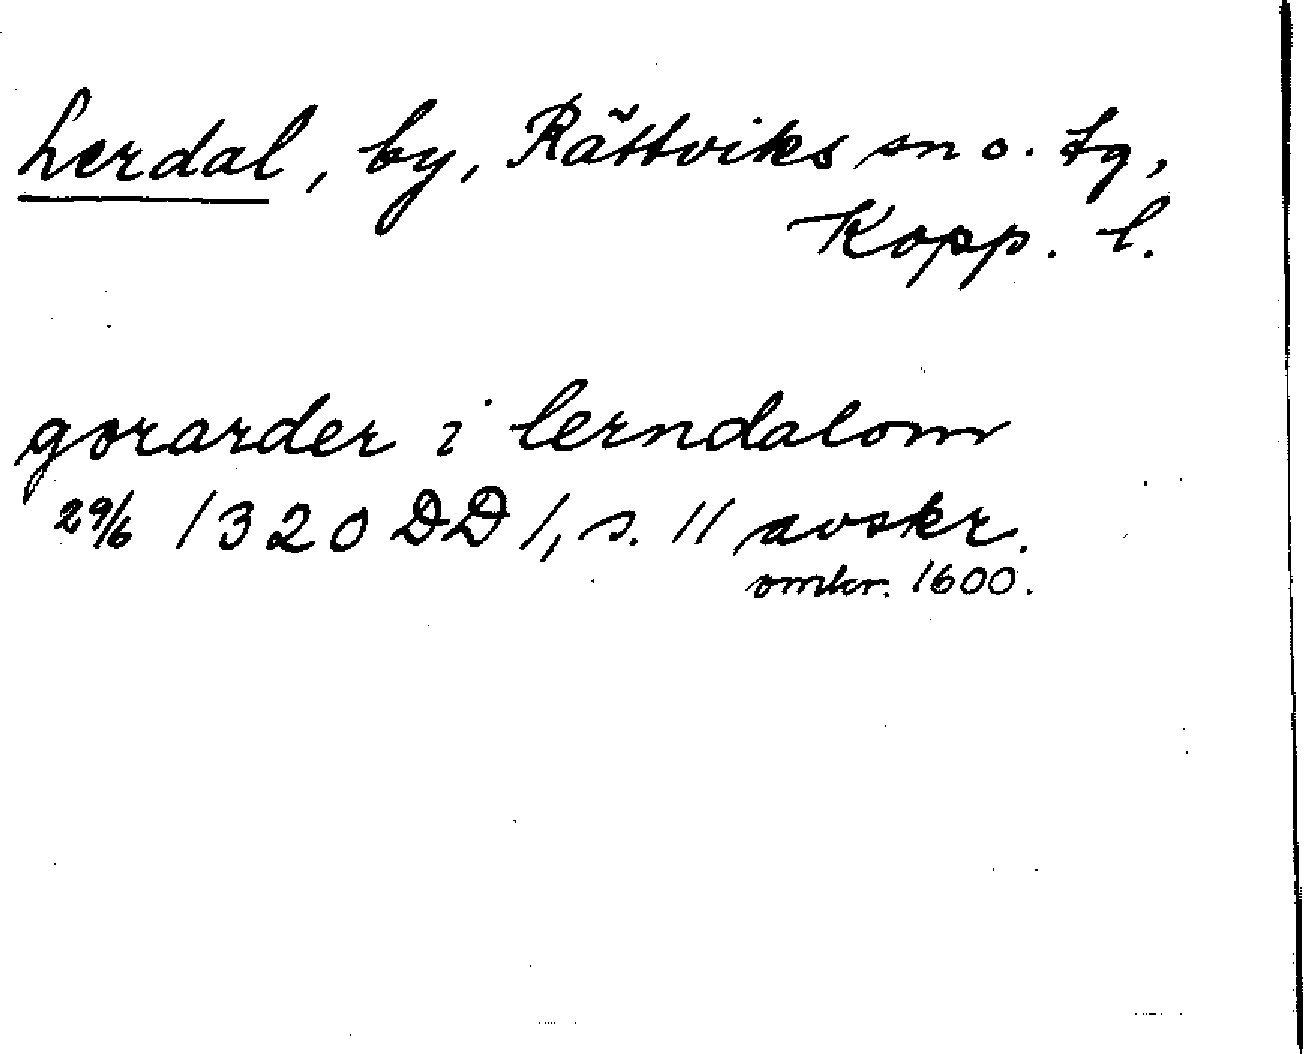 Lerdal, by, Rättviks sn o. tg,
Kopp. l.
gørarder i lerndalom
29/6 1320 DD 1, s. 11 avskr.
omkr. 1600.